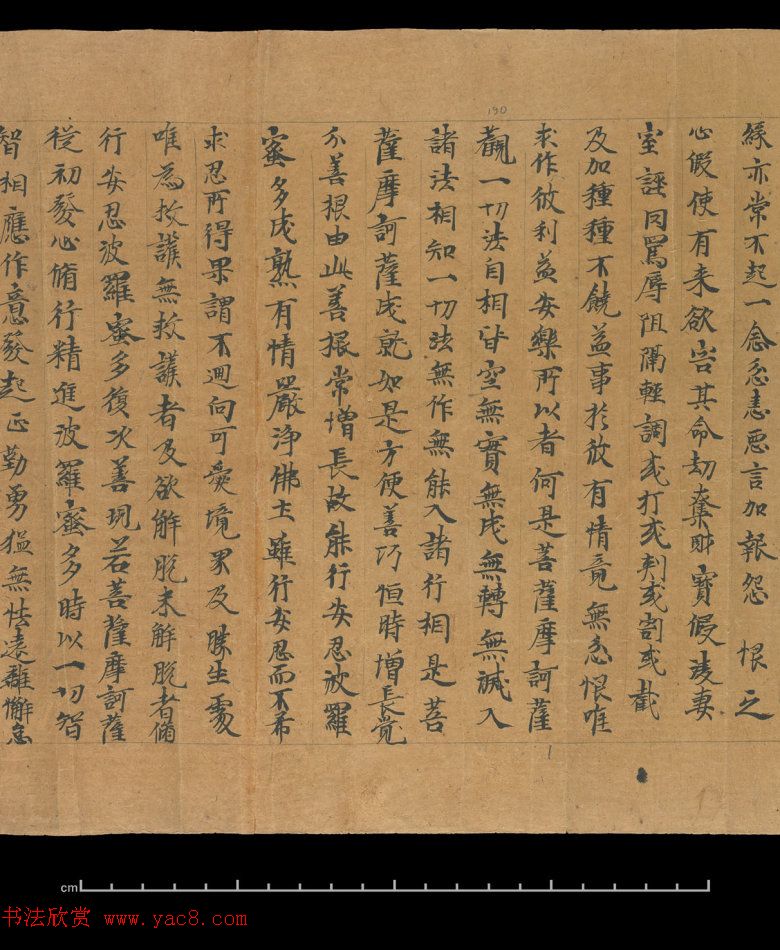 緣亦常不起一念忿恚惡言加報怨恨之
心假使有來欲害其命劫奪財寶假淩妻
室誣同罵辱阻隔輕調或打或判或割或截
及加種種不饒益事於彼有情竟無忿恨唯
求作彼利益安樂所以者何是菩薩摩訶薩
觀一切法自相皆空無實無成無轉無滅入
諸法相知一切法無作無能入諸行相是菩
薩摩訶薩成就如是方便善巧恒時增長覺
分善根由此善根常增長故能行安忍波羅
蜜多成熟有情嚴淨佛土雖行安忍而不希
求忍所得果謂不迴向可愛境界及勝生處
唯為救護無救護者及欲解脫未解脫者脩
行安忍波羅蜜多復次善現若菩薩摩訶薩
從初發心脩行精進波羅蜜多時以一切智
智相應作意發起正勤勇猛無怯遠離懈怠
190
cm
书法欣赏 www.yac8.com